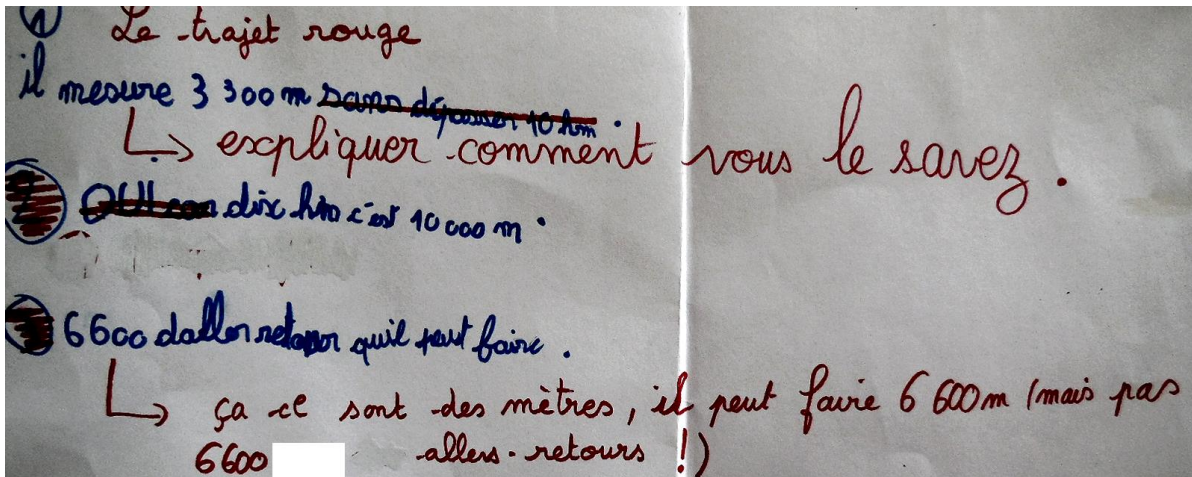 1 Le trajet rouge
il mesure 3 300 m sans dépasser 10 hm.
↳ expliquer comment vous le savez.
OUI car dix km c'est 10 000 m.
6600 daller retour quil peut faire.
↳ ça ce sont des mètres, il peut faire 6 600 m (mais pas
6600 allers-retours !)